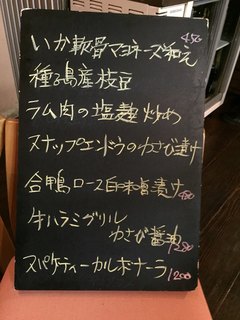 450
いか軟骨マヨネーズ和え
種子島産枝豆
ラム肉の塩麹炒め
スナップエンドウのわさび漬け
合鴨ロース白味噌漬け
牛ハラミグリル
わさび醤油
スパゲティーカルボナーラ
1200